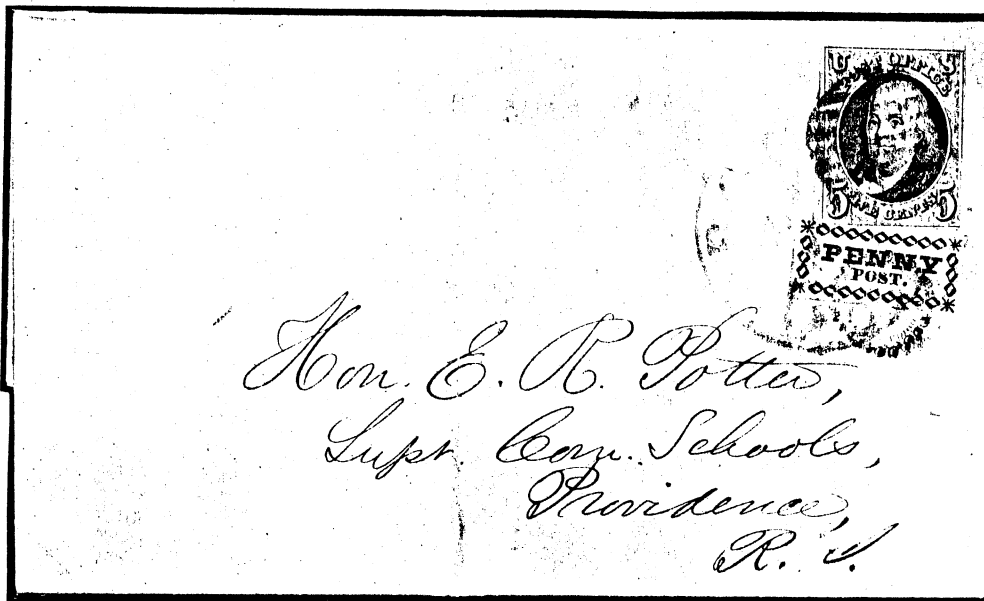 U 5
POST OFFICE
5 FIVE CENTS 5
PENNY
POST.
Hon. E. R. Potter,
Supt. Com. Schools,
Providence,
R. I.